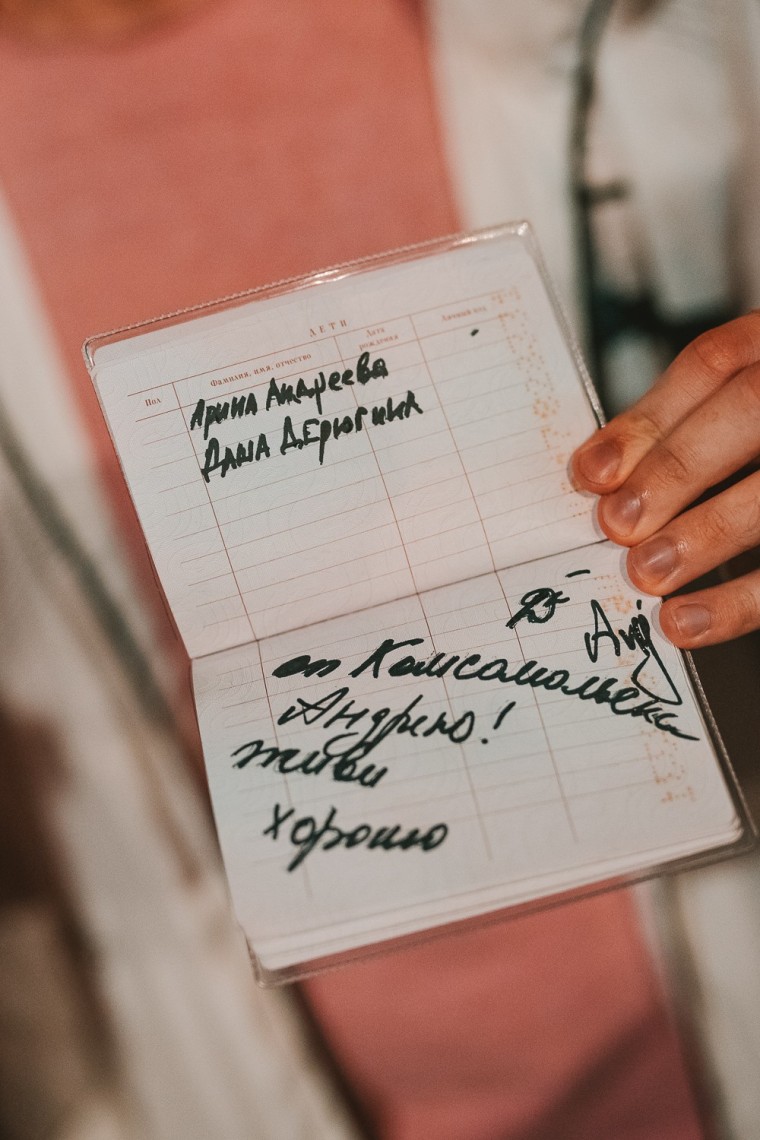 ДЕТИ
Пол Фамилия, имя, отчество Дата рождения Личный код
Арина Андреева
Даша Дерюгина
от Комсомольска
Андрею!
живи
хорошо